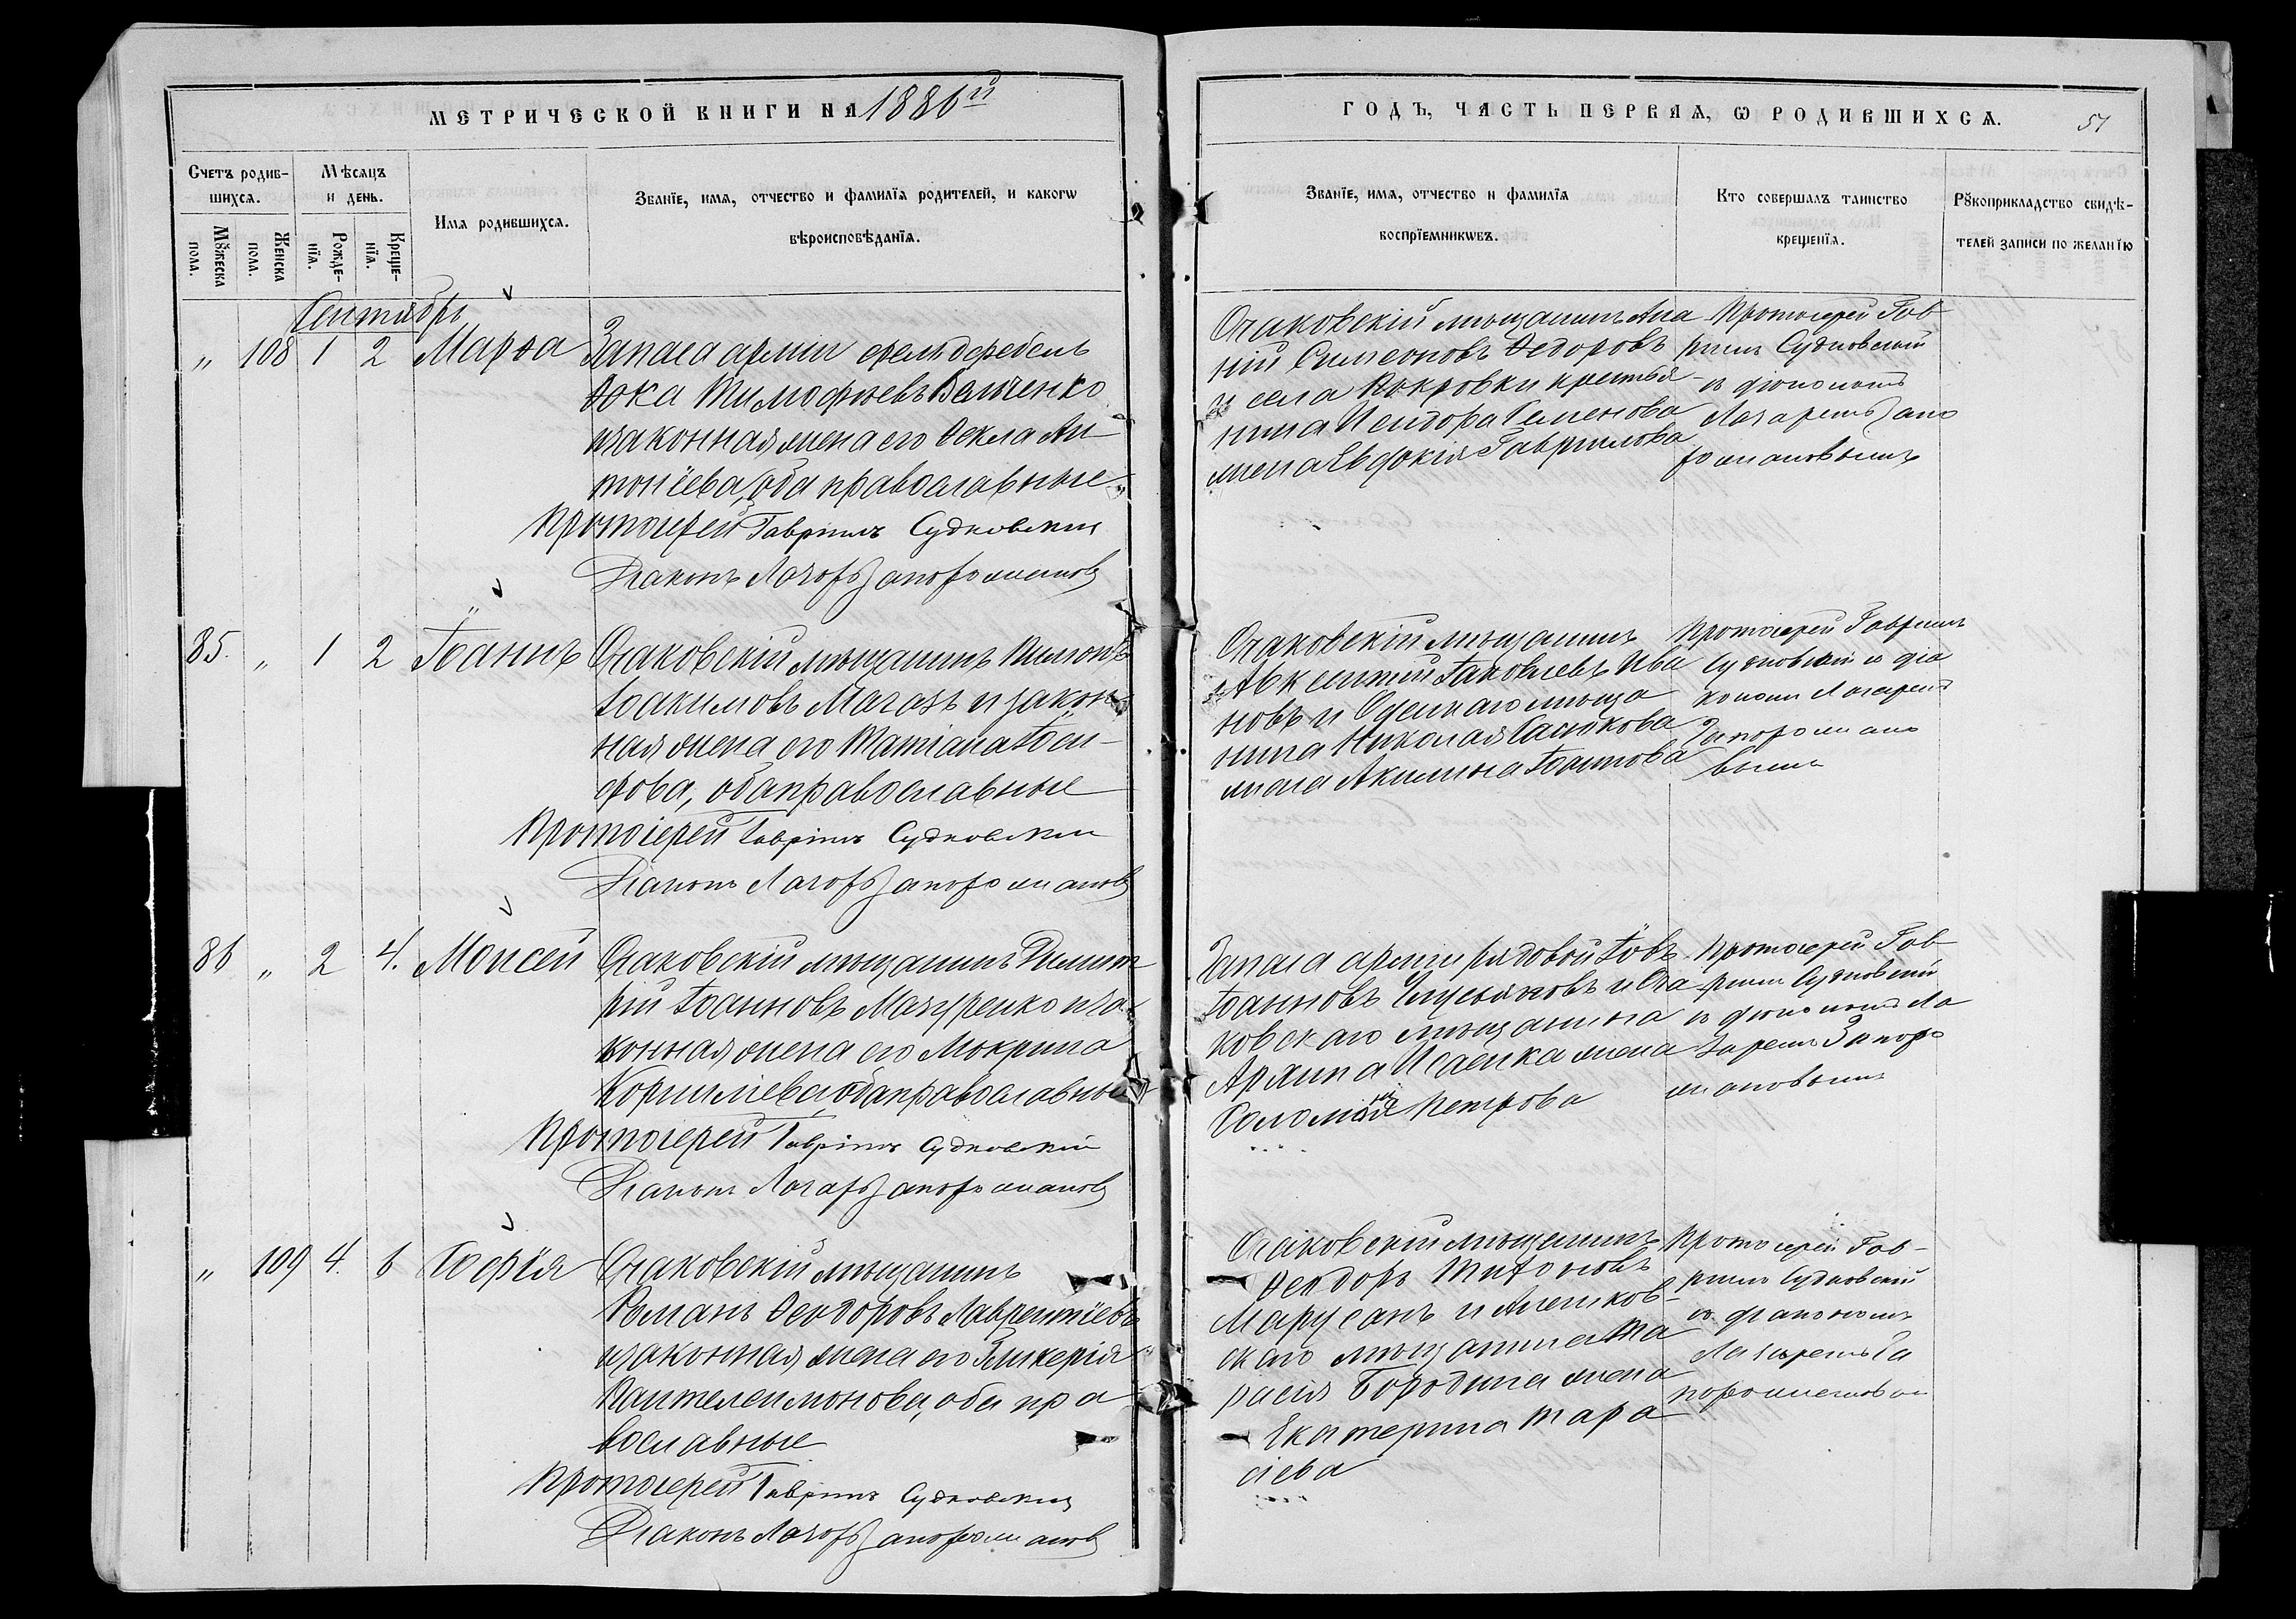 МЕТРИЧЕСКОЙ КНИГИ НА 1886й
ГОДЪ, ЧАСТЬ ПЕРВАЯ, Ѡ РОДИВШИХСѦ.
51
Счетъ родив-
шихсѧ.
Мѣсѧцъ
и день.
Мꙋжеска
пола.
Женска
пола.
Рожде-
нїѧ.
Креще-
нїѧ.
Имѧ родившихсѧ.
Званїе, имѧ, отчество и фамилїѧ родителей, и какогѡ
вѣроисповѣданїѧ.
Званїе, имѧ, отчество и фамилїѧ
воспрїемникѡвъ.
Кто совершалъ таинство
крещенїѧ.
Рꙋкоприкладство свидѣ-
телей записи по желанїю
Сентябрь
„ 108 1 2 Марѳа
Запаса арміи
Ѳока Тимофѣевъ
и законная жена его Ѳекла Ан-
тоніева, оба православные
Протоіерей Гавріилъ Судковскій
Діаконъ Лазарь Запорожановъ
Очаковскій мѣщанинъ Ана
ній Симеоновъ Ѳедоровъ
и села Покровки крестья-
нина Исидора Семенова
жена Евдокія Гавриилова
Протоіерей Гав-
ріилъ Судковскій
съ діакономъ
Лазаремъ Запо
рожановымъ
85. „ 1 2 Іоаннъ
Очаковскій мѣщанинъ
Іоакимовъ и закон-
ная жена его Татіана Іоси-
фова, оба православные
Протоіерей Гавріилъ Судковскій
Діаконъ Лазарь Запорожановъ
Очаковскій мѣщанинъ
Авксентій Іаковлевъ Ива
новъ и Одесскаго мѣща
нина Николая Сасюкова
жена Акилина Іоаннова
Протоіерей Гавріилъ
Судковскій съ діа
кономъ Лазаремъ
Запорожано
вымъ
86 „ 2 4. Моисей
Очаковскій мѣщанинъ Димит
рій Іоанновъ Мазуренко и за-
конная жена его Мокрина
Корниліева, оба православные
Протоіерей Гавріилъ Судковскій
Діаконъ Лазарь Запорожановъ
Запаса арміи рядовой Іовъ
Іоанновъ и Оча
ковскаго мѣщанина
Архипа Исаенка жена
Петрова
Протоіерей Гав-
ріилъ Судковскій
съ діакономъ Ла
заремъ Запоро
жановымъ
„ 109 4. 6 Софія
Очаковскій мѣщанинъ
Романъ Ѳеодоровъ Лаврентіевъ
и законная жена его Гликерія
Пантелеимонова, оба пра
вославные
Протоіерей Гавріилъ Судковскій
Діаконъ Лазарь Запорожановъ
Очаковскій мѣщанинъ
Ѳеодоръ
Марусанъ и Алешков-
скаго мѣщанина Та
расія Бородина жена
Екатерина Тара
сіева
Протоіерей Гав-
ріилъ Судковскій
съ діакономъ
Лазаремъ За